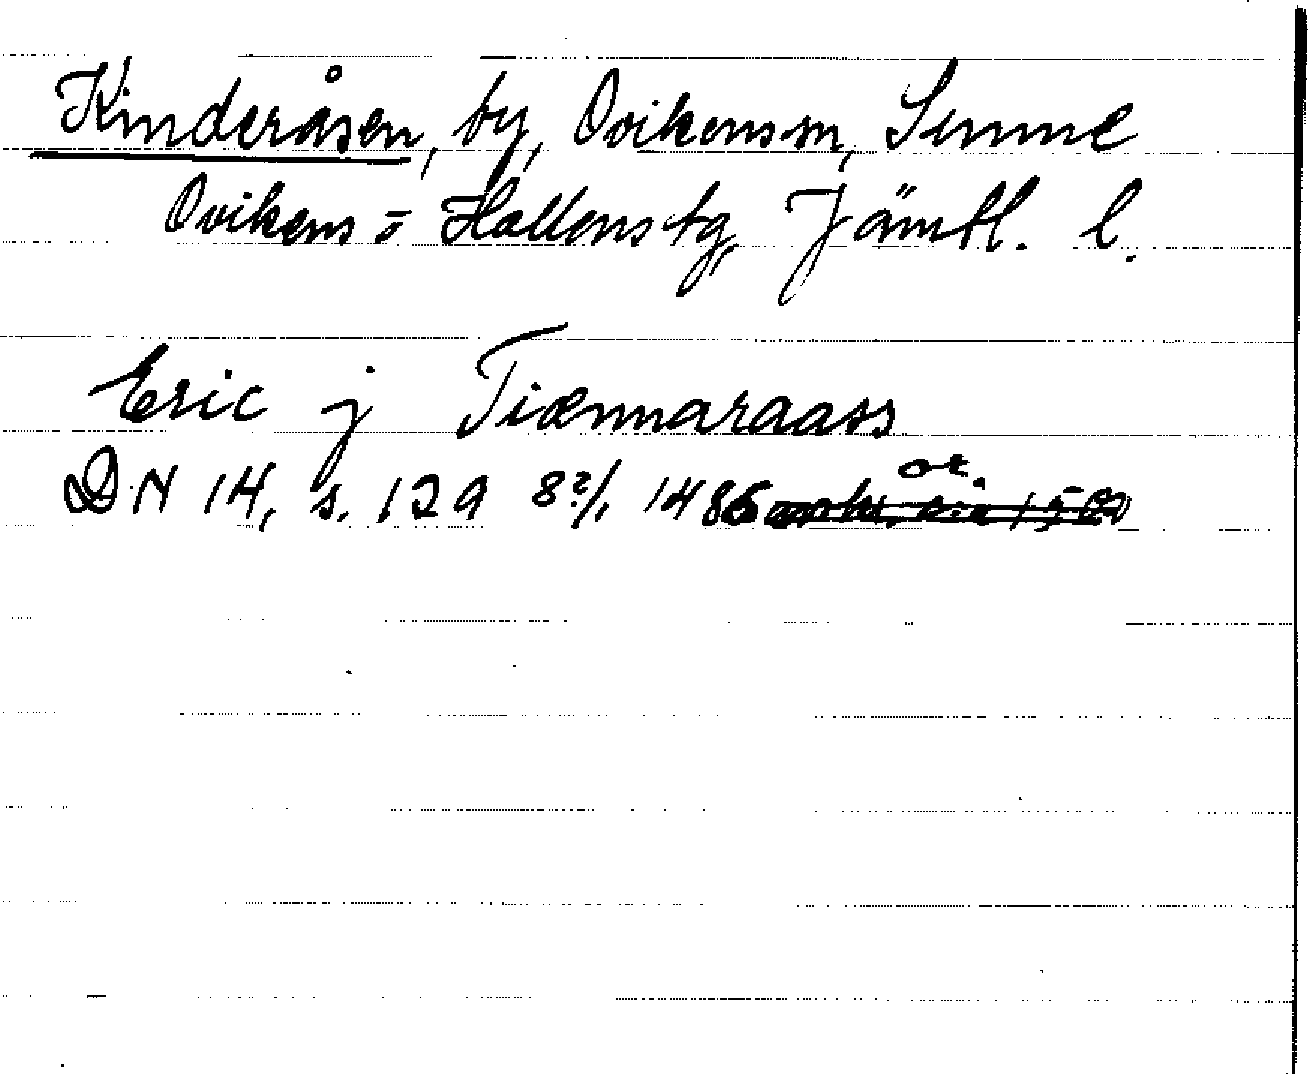 Kinderåsen, by, Ovikens sn, Sunne
Ovikens = Hallens tg, Jämtl. l.
Eric j Tiænnaraass
DN 14, s. 129 8?/1 1486 or